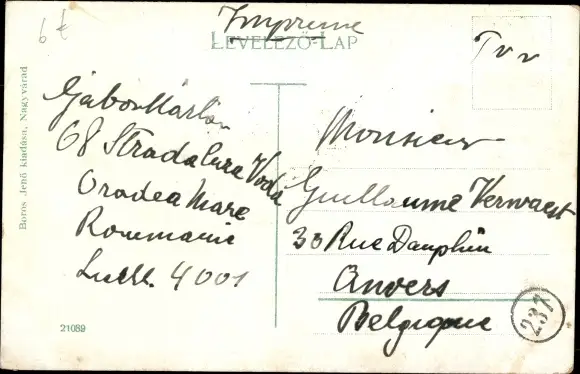 6
Imprimé
LEVELEZŐ-LAP
TVV
Boros Jenő kiadása, Nagyvárad
Gábor Márton
68 Strada Cuza Voda
Oradea Mare
Roumanie
4001
Monsieur
Guillaume Verwaest
33 Rue Dauphin
Anvers
Belgique
237
21089